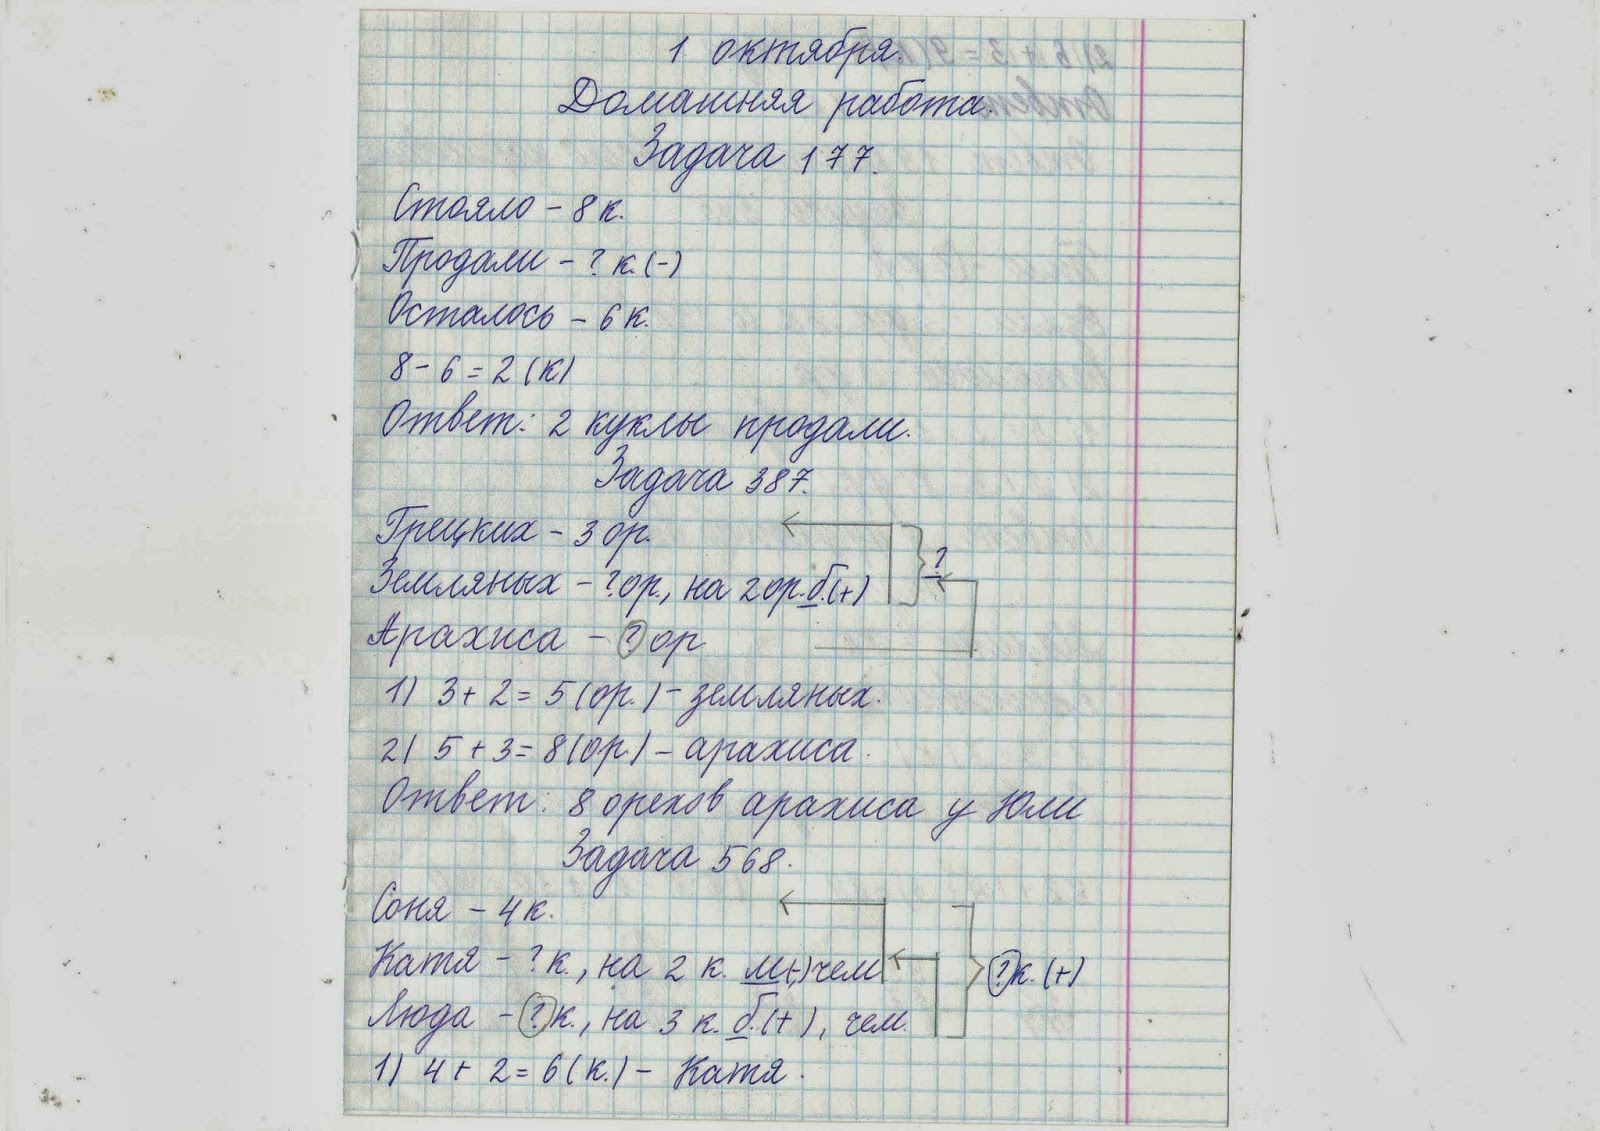 1 октября.
Домашняя работа.
Задача 177.
Стояло – 8 к.
Продали – ? к. (-)
Осталось – 6 к.
8 – 6 = 2 (к)
Ответ: 2 куклы продали.
Задача 387.
Грецких – 3 ор.
Земляных – ? ор., на 2 ор. б. (+)
?
Арахиса – ? ор
1) 3 + 2 = 5 (ор.) – земляных.
2) 5 + 3 = 8 (ор.) – арахиса.
Ответ: 8 орехов арахиса у Юли
Задача 568.
Соня – 4 к.
Катя – ? к., на 2 к. м (-) чем
? к. (+)
Люда – ? к., на 3 к. б. (+), чем
1) 4 + 2 = 6 (к.) – Катя.